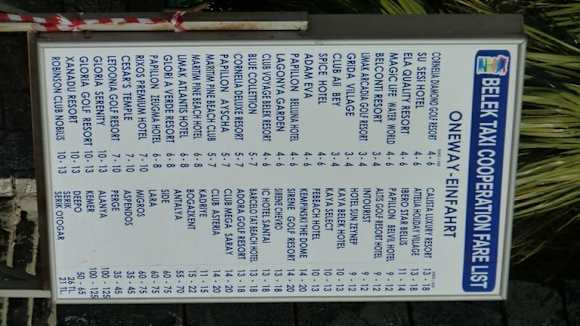 BELEK TAXI COOPERATION FARE LIST
ONEWAY-EINFAHRT
CORNELIA DIAMOND GOLF RESORT 4 - 6
SU SESI HOTEL 4 - 6
ELA QUALITY RESORT 4 - 6
MAGIC LIFE WATER WORLD 4 - 6
BELCON RESORT 3 - 4
LIMAK ARCADIA GOLF RESORT 3 - 4
GRIDA VILLAGE 3 - 4
CLUB ALIBEY 3 - 4
SPICE HOTEL 4 - 6
ADAM EVA 4 - 6
PAPILLON BELUNA HOTEL 4 - 6
LAGONYA GARDEN 4 - 6
CLUB VOYAGE BELEK RESORT 4 - 6
BLUE COLLETION 5 - 7
CORNELIA DELUXE RESORT 5 - 7
PAPILLON AYSCHA 5 - 7
MARITIM PINE BEACH CLUB 5 - 7
MARITIM PINE BEACH HOTEL 6 - 8
LIMAK ATLANTIS HOTEL 6 - 8
GLORIA VERDE RESORT 6 - 8
PAPILLON ZEUGMA HOTEL 6 - 8
RIXOS PREMIUM HOTEL 7 - 10
TEMPLE 7 - 10
LETOONIA GOLF RESORT 7 - 10
GLORIA SERENITY 10 - 13
GLORIA GOLF RESORT 10 - 13
XANADU RESORT 10 - 13
ROBINSON CLUB NOBILIS 10 - 13
CALISTA LUXURY RESORT 13 - 18
ATTELIA HOLIDAY VILLAGE 13 - 18
IBERO STAR BELLIS 11 - 14
PAPILLON BELVIL HOTEL 9 - 12
ALTIS GOLF RESORT HOTEL 9 - 12
INTOURIST 9 - 12
HOTEL SUN ZEYNEP 9 - 12
KAYA BELEK HOTEL 10 - 13
KAYA SELECT 10 - 13
FEBEACH HOTEL 10 - 13
KEMPINSKI THE DOME 14 - 20
SIRENE GOLF RESORT 14 - 20
IC HOTEL SANTAI 13 - 18
BEACH HOTEL 13 - 18
ADORA GOLF RESORT 13 - 18
CLUB MEGA SARAY 14 - 20
CLUB ASTERIA 14 - 20
KADRIYE 11 - 15
BOGAZKENT 15 - 22
ANTALYA 55 - 70
SIDE 60 - 75
LARA
MIGROS 60 - 75
ASPENDOS 35 - 45
PERGE 35 - 45
ALANYA 100 - 125
KEMER 100 - 125
DEEPO 50 - 65
SERIK 26 TL
SERIK OTOGAR 21 TL